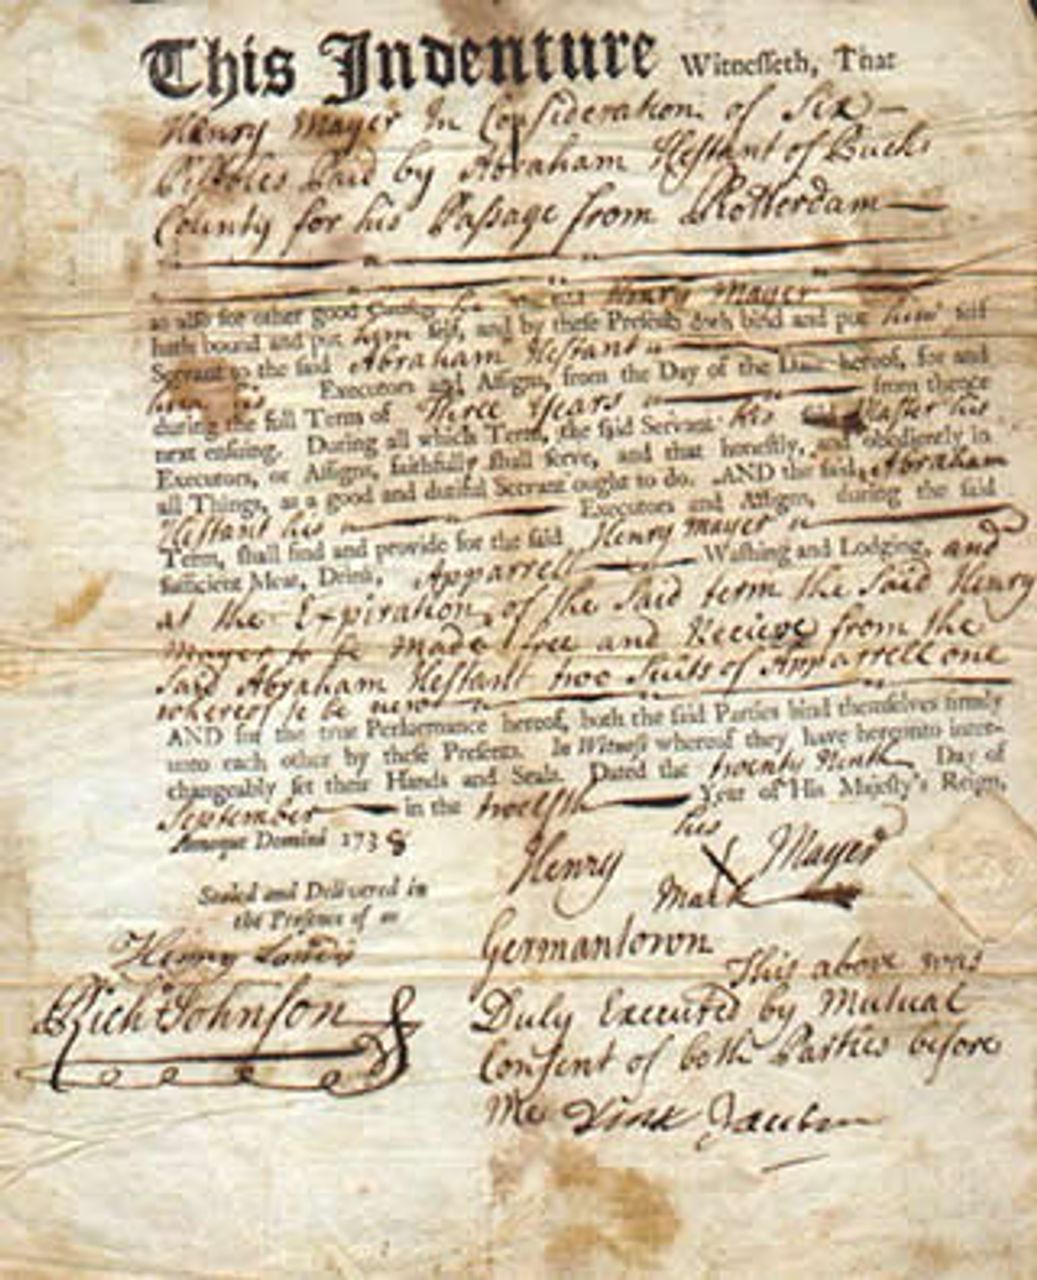 This Indenture Witnesseth, That
Henry Mayer In Consideration of Six
Pistoles Paid by Abraham Hestant of Bucks
County for his Passage from Rotterdam
as also for other good Henry Mayer
hath bound and put him self, and by these Presents doth bind and put him self
Servant to the said Abraham Hestant
Executors and Assigns, from the Day of the Date hereof, for and
during the full Term of Three Years from thence
next ensuing. During all which Term, the said Servant his said Master his
Executors, or Assigns, faithfully shall serve, and that honestly, and obediently in
all Things, as a good and dutiful Servant ought to do. AND the said Abraham
Hestant his Executors and Assigns, during the said
Term, shall find and provide for the said Henry Mayer
sufficient Meat, Drink, Apparrell Washing and Lodging, and
at the Expiration of the Said term the Said Henry
Mayer to be Made free and Recieve from the
Said Abraham Hestant two Suits of Apparrell one
whereof to be new
AND for the true Performance hereof, both the said Parties bind themselves firmly
unto each other by these Presents. In Witness whereof they have hereunto inter-
changeably set their Hands and Seals. Dated the twenty Ninth Day of
September in the twelfth Year of His Majesty's Reign,
Annoque Domini 1738
his
Henry Mayer
Mark
Sealed and Delivered in
the Presence of us
Henry
Rich Johnson
Germantown
This above was
Duly Executed by Mutual
Consent of both Parties before
Me